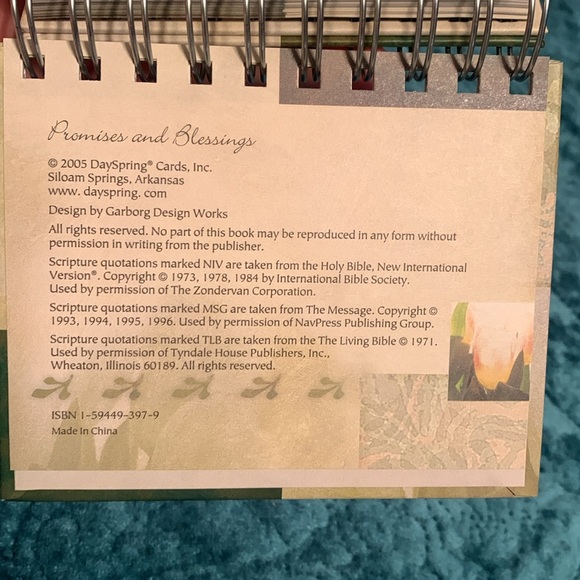 Promises and Blessings
© 2005 DaySpring® Cards, Inc.
Siloam Springs, Arkansas
www. dayspring. com
Design by Garborg Design Works
All rights reserved. No part of this book may be reproduced in any form without
permission in writing from the publisher.
Scripture quotations marked NIV are taken from the Holy Bible, New International
Version®. Copyright © 1973, 1978, 1984 by International Bible Society.
Used by permission of The Zondervan Corporation.
Scripture quotations marked MSG are taken from The Message. Copyright ©
1993, 1994, 1995, 1996. Used by permission of NavPress Publishing Group.
Scripture quotations marked TLB are taken from the The Living Bible © 1971.
Used by permission of Tyndale House Publishers, Inc.,
Wheaton, Illinois 60189. All rights reserved.
ISBN 1-59449-397-9
Made in China